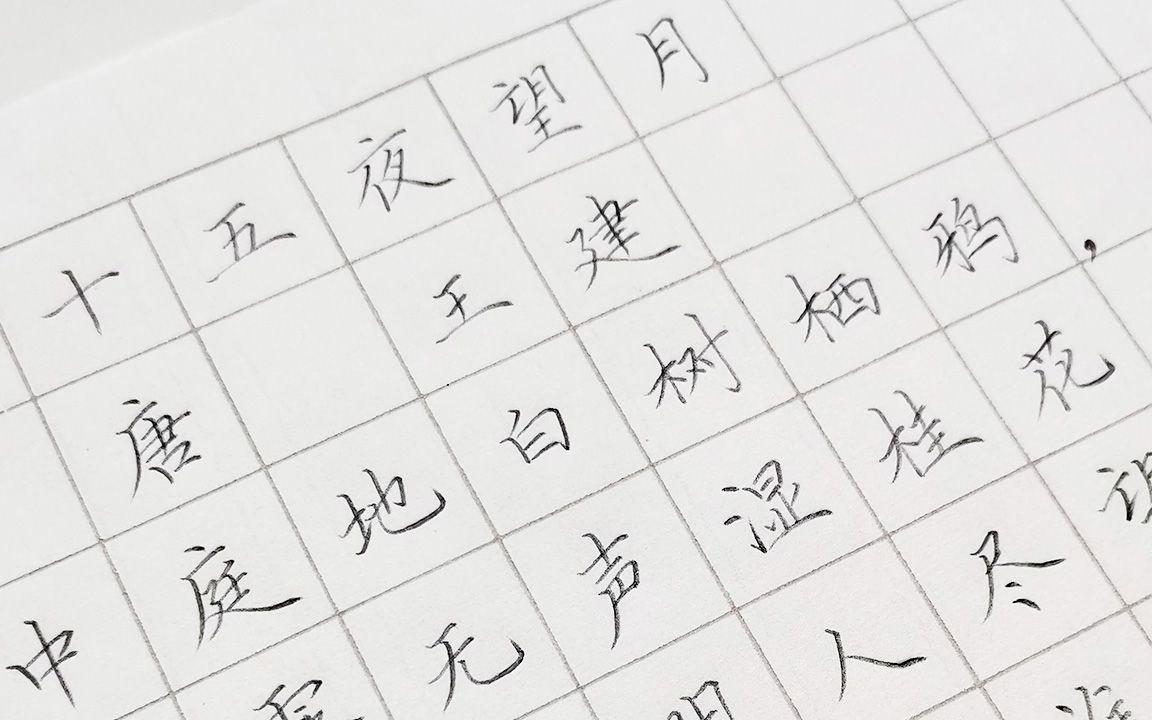 十五夜望月
唐 王建
中庭地白树栖鸦，
无声湿桂花
明人尽